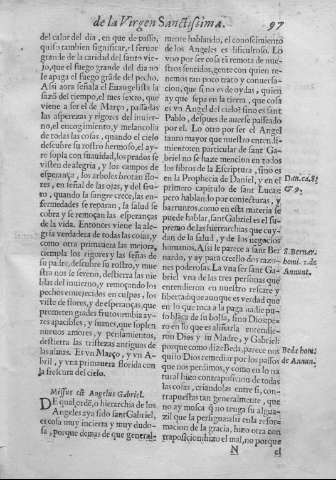 de la Virgen Sanctissima. 97
del calor del dia, en que de passo,
quiso tambien significar, el feruor
grande de la caridad del santo vie-
jo, que el fuego grande del dia no
le apaga el fuego grãde del pecho.
Assi aora señala el Euangelista la
sazõ del tiempo, el mes sexto, que
viene a ser el de Março, passadas
las asperezas y rigores del inuier-
no, el encogimiento y melancolia
de todas las cosas, quando el cielo
descubre su rostro hermoso, el ay-
re sopla con suauidad, los prados se
visten de alegria, y los campos de
esperança, los arboles brotan flo-
res, en señal de las ojas, y del fru-
to, quando la sangre crece, las en-
fermedades se reparan, la salud se
cobra y se remoçan las esperanças
de la vida. Entonces viene la ale-
gria verdadera de todas las cosas, y
como otra primauera las mejora,
tiempla los rigores y las señas de
su padre, descubre su rostro, y mue
stra nos se sereno, deshierra las nie
blas del inuierno, y remoçando los
pechos enuejecidos en culpas, los
viste de flores, y de esperanças, que
prometen grandes frutos embia ay-
res apacibles, y sanos, que soplen
nueuos amores, y pensamientos,
destierra las tristezas antiguas de
las almas. Es vn Março, y vn A-
bril, y vna primauera florida con
la frescura del cielo.
Missus est Angelus Gabriel.
DE qual, ordẽ, o hierarchia de los
Angeles aya sido sant Gabriel,
es cosa muy incierta y muy dudo-
sa, porque demas de que general-
mente hablando, el conoscimiento
de los Angeles es dificultoso. Lo
vno por ser cosa tã remota de nues-
tros sentidos, gente con quien re-
nemos tan poco trato y conuersa-
cion, que si no es de oydas, quien
ay que sepa en la tierra, que cosa
es vn Angel del cielo? sino es sant
Pablo, despues de auerse passeado
por el. Lo otro por ser el Angel
tanto mayor que nuestro entendi-
miento en particular de sant Ga-
briel no se haze mencion en todos
los libros de la Escriptura, sino es
en la Prophecia de Daniel, y en el
primero capitulo de sant Lucas
pero hablando por conjecturas, y
barruntos, como en esta materia se
puede hablar, sant Gabriel es el su-
premo de las hierarchias que cuy-
dan de la salud, y de los negocios
humanos. Assi le parece a sant Ber
nardo, y ay para creello dos razo-
nes poderosas. La vna ser sant Ga-
briel vna de las tres personas que
entendieron en nuestro rescate y
libertad que aunque es verdad que
en lo que toca a la paga nadie pu-
so blãca de su bolsa, sino Dios; pe-
ro en lo que es assistir la entendie-
ron Dios y su Madre, y Gabriel:
porque como dize Beda, parece nos
quiso Dios remediar por los passos
que nos perdimos, y como en lo na
tural hizo contraposicion de todas
las cosas, criandolas entre si, con-
trapuestas tan generalmente, que
no ay mosca q no tenga su algua-
zil que la persiga: assi en la refor-
macion de la gracia, hizo otra con
traposicion: hizo el mal, no porque
Dan. ca. 8.
& 9.
S. Bernar.
homi. 1. de
Annunt.
Beda homi.
de Annun.
N el